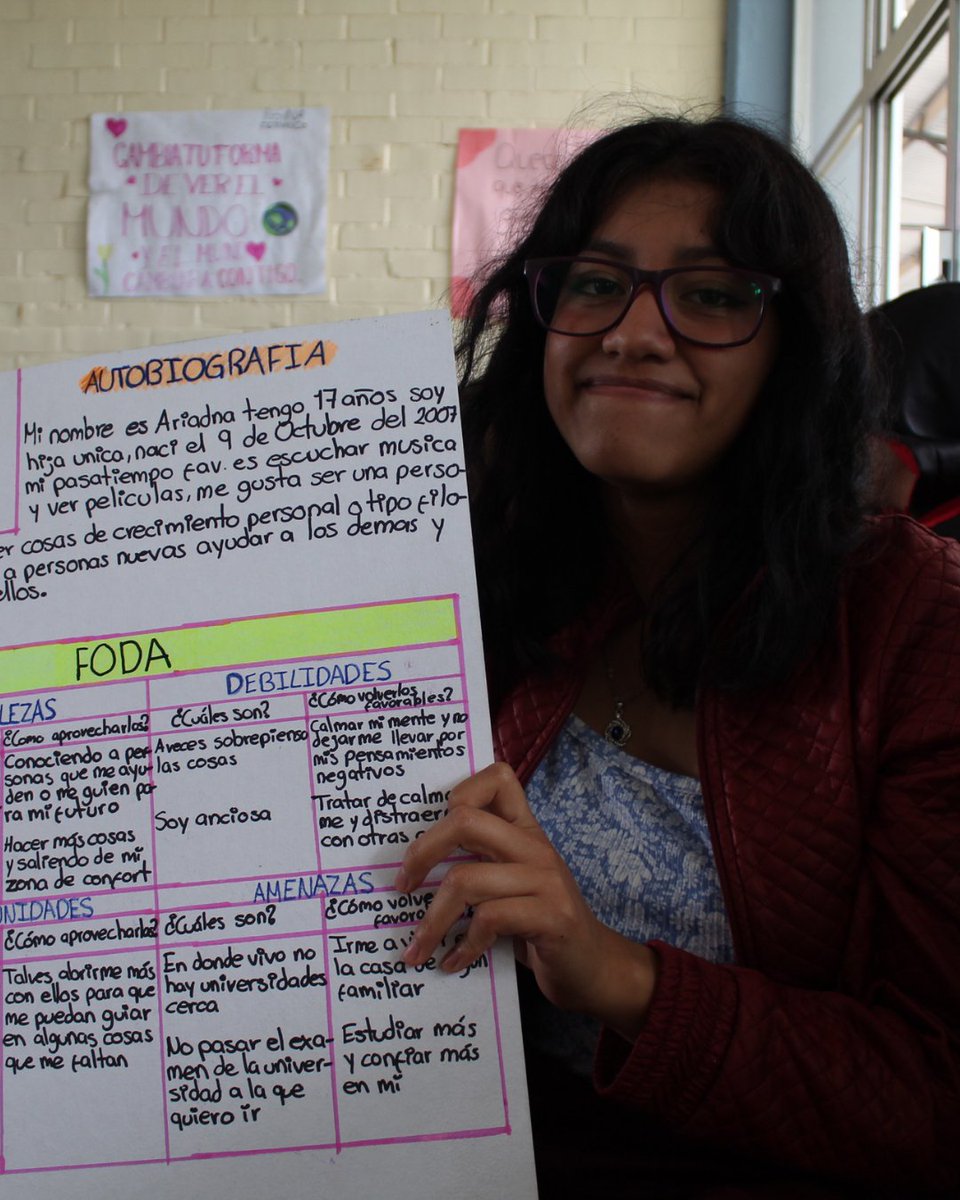 CAMBIA TU FORMA
DE VER EL
MUNDO
Y EL MUN
CAMBIARA CONTIGO.
AUTOBIOGRAFIA
Mi nombre es Ariadna tengo 17 años soy
hija unica, naci el 9 de Octubre del 2007
mi pasatiempo fav. es escuchar musica
y ver peliculas, me gusta ser una perso-
er cosas de crecimiento personal o tipo filo-
a personas nuevas ayudar a los demas y
ellos.
FODA
LEZAS
DEBILIDADES
¿Como aprovecharla?
¿Cuáles son?
¿Cómo volverlos
favorables?
Conociendo a per-
sonas que me ayu-
den o me guien pa-
ra mi futuro
Hacer más cosas
y saliendo de mi
zona de confort
Aveces sobrepienso
las cosas
Soy anciosa
Calmar mi mente y no
dejarme llevar por
mis pensamientos
negativos
Tratar de calma
me y distraer
con otras
UNIDADES
AMENAZAS
¿Cómo aprovecharla?
¿Cuáles son?
¿Cómo volve
favora
Talves abrirme más
con ellos para que
me puedan guiar
en algunas cosas
que me faltan
En donde vivo no
hay universidades
cerca
No pasar el exa-
men de la univer-
sidad a la que
quiero ir
Irme a vi
la casa de
familiar
Estudiar más
y confiar más
en mi